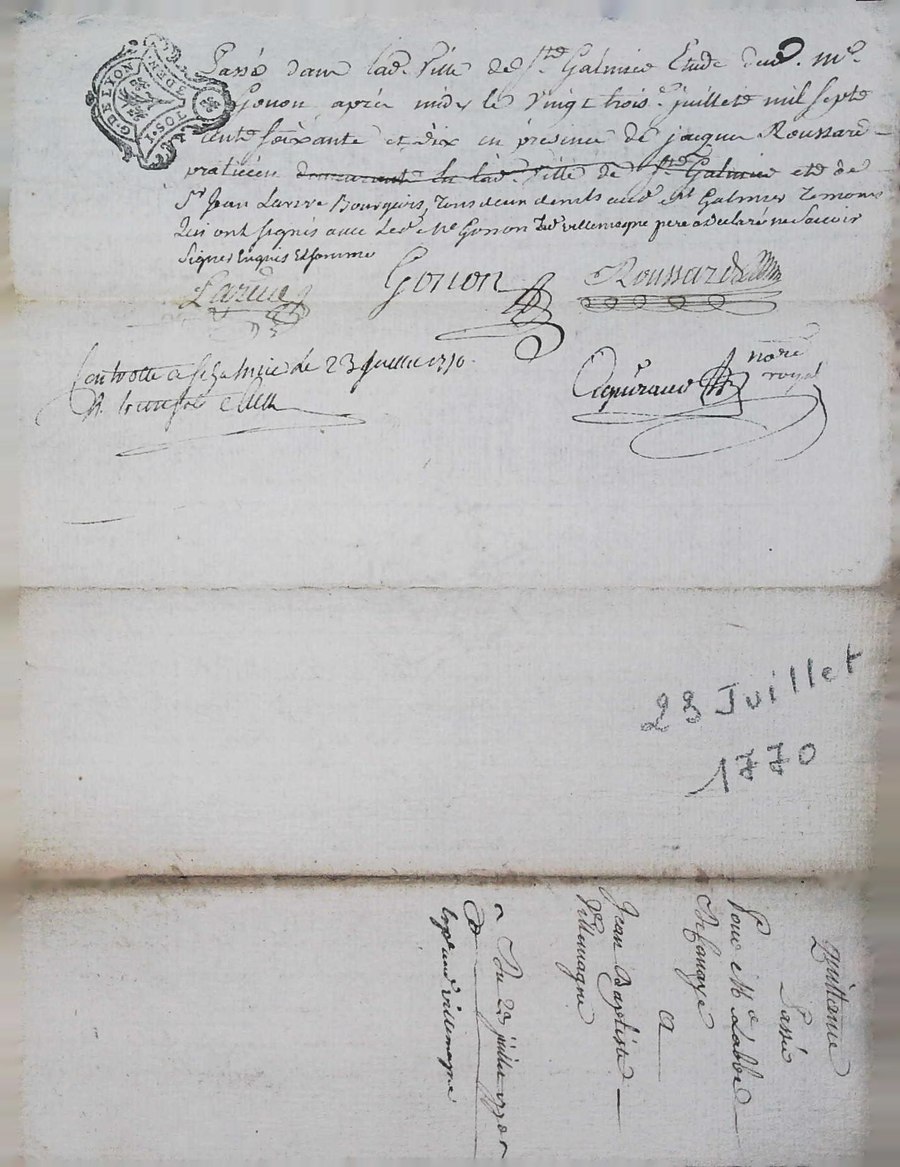 G. DE LYON
TOSI
3 DEN.
Passé dans lad. Ville de St Galmier Etude dud. Me
Gonon après midy le Vingt trois juillet mil sept
cents soixante et dix en présence de jacques Roussard
praticien demeurant en lad. Ville de St Galmier et de
Sr Jean Larue Bourgeois, tous deux dud. St Galmier temoins
qui ont signés avec led. Me Gonon led. Villemagne pere a declaré ne savoir
signer Enquis et sommé
Larue Gonon Roussard
Controllé a St Galmier le 23 Juillet 1770.
R.
nore
royal
23 Juillet
1770
Quittance
Passé
Pour Mr Labbé
A
Jean Baptiste
Villemagne
Du 23 juillet 1770
villemagne